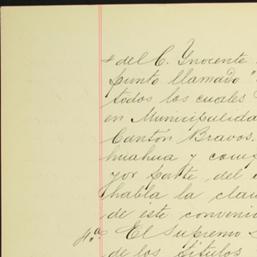 del C. Ynocente
punto llamado "
todos los cuales
en Municipalida
Cantón Bravos.
huahua y comp
yor parte del
habla la clau
de este convenio
4.a El Supremo
de los títulos